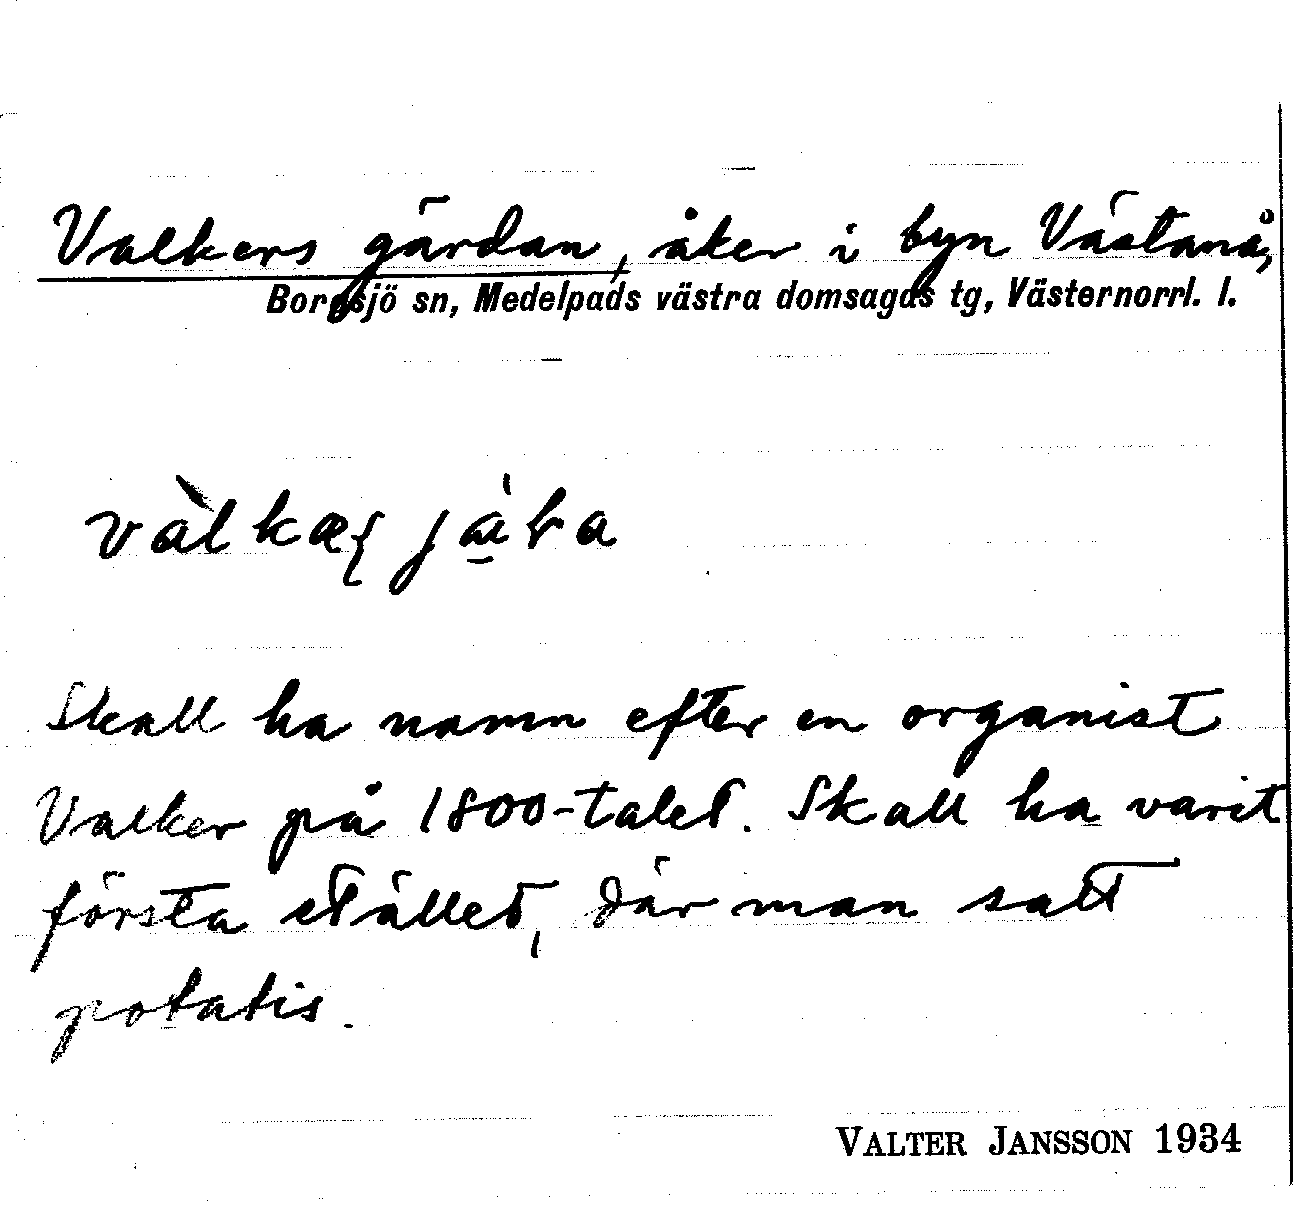 Valkers gärdan, åker i byn Västanå,
Borgsjö sn, Medelpads västra domsagas tg, Västernorrl. l.
Skall ha namn efter en organist
Valker på 1800-talet. Skall ha varit
första stället, där man satt
potatis.
VALTER JANSSON 1934